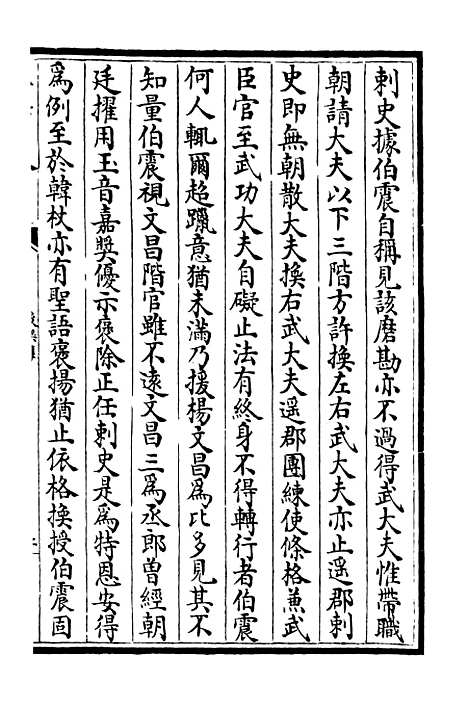 刺史據伯震自稱見該磨勘亦不過得武大夫惟帶職
朝請大夫以下三階方許換左右武大夫亦止遥郡刺
史即無朝散大夫換右武大夫遥郡團練使條格蕪武
臣官至武功大夫自礙止法有終身不得轉行者伯震
何人輒爾超躐意猶未滿乃援楊文昌爲比多見其不
知量伯震視文昌階官雖不遠文昌三爲丞郎曽經朝
廷擢用玉音嘉奬優示褒除正任刺史是爲特恩安得
爲例至於韓杕亦有聖語褒揚猶止依格換授伯震固